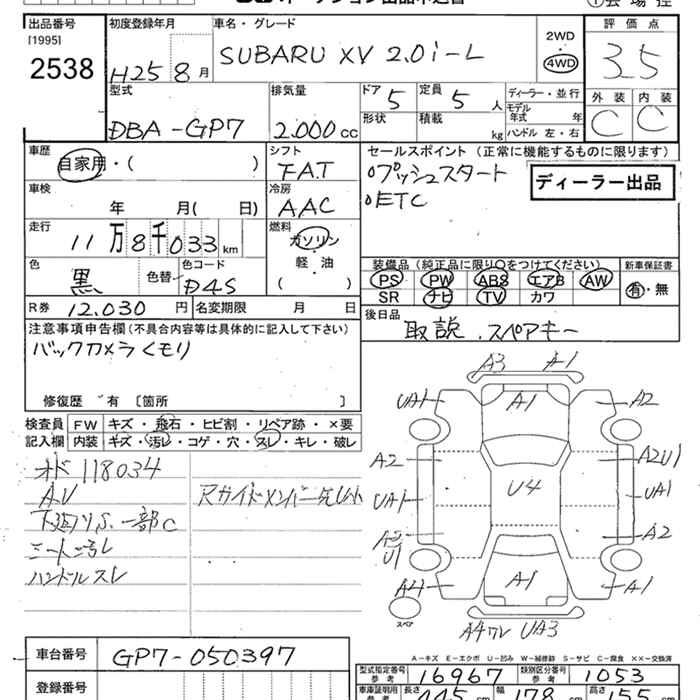 出品番号 [1995] 2538
初度登録年月 H25 8月
車名・グレード SUBARU XV 2.0i-L
2WD 4WD
評価点 3.5
外装 C 内装 C
型式 DBA-GP7
排気量 2.000 cc
ドア 5 定員 5 人
形状 積載 kg
ディーラー・並行
モデル年式 年
ハンドル 左・右
車歴 自家用・( )
シフト FAT
セールスポイント (正常に機能するものに限ります)
○プッシュスタート
○ETC
ディーラー出品
車検 年 月( 日)
冷房 AAC
走行 11万8千033km
燃料 ガソリン 軽・油 ( )
色 黒 色替 色コード D4S
装備品 (純正品に限り○をつけてください)
PS PW ABS エアB AW
SR ナビ TV カワ
新車保証書 有・無
R券 12.030円 名変期限 月 日
後日品 取説.スペアキー
注意事項申告欄(不具合内容等は具体的に記入して下さい)
バックカメラくモリ
修復歴 有 [箇所 ]
検査員記入欄
FW キズ・飛石・ヒビ割・リペア跡・×要
内装 キズ・汚レ・コゲ・穴・スレ・キレ・破レ
オド 118034
AV
ハンドルスレ
A3 A1
UA1 A1 A2
A2 A2U1
UA1 U4 UA1
U1 A2
A4 A1 A1
スペア
UA3
A-キズ E-エクボ U-凹み W-補修跡 S-サビ C-腐食 XX-交換済
車台番号 GP7-050397
型式指定番号 参考 16967 類別区分番号 参考 1053
登録番号
車庫証明用 参考 長さ 445cm 幅 178cm 高さ 155